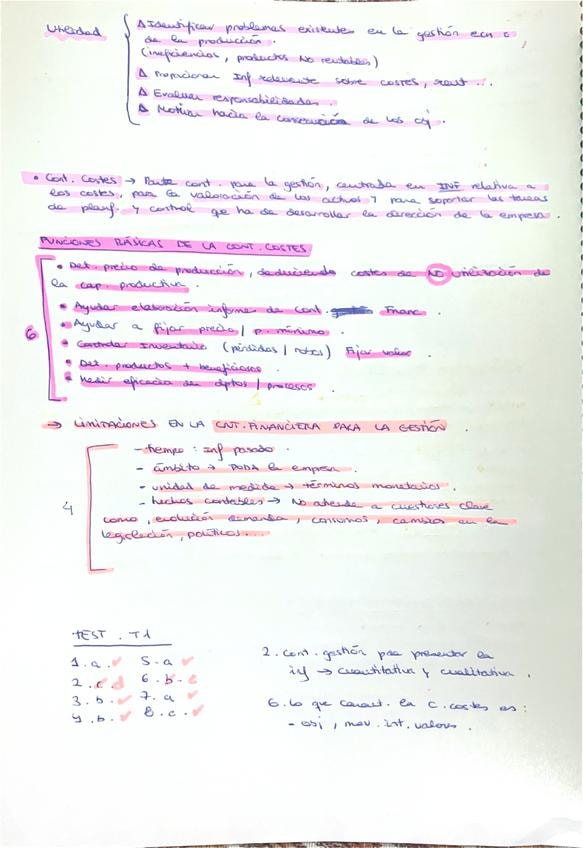 Utilidad
Δ Identificar problemas existentes en la gestión ecn o
de la producción.
(ineficiencias, productos No rentables)
Δ Proporcionar Inf relevante sobre costes, result...
Δ Evaluar responsabilidades.
Δ Motivar hacia la consecución de los obj.
• Cont. Costes → Parte cont. para la gestión, centrada en INF relativa a
los costes, para la valoración de los activos y para soportar las tareas
de planf. y control que ha de desarrollar la dirección de la empresa.
FUNCIONES BÁSICAS DE LA CONT. COSTES
• Det. precio de producción, deduciendo costes de NO utilización de
la cap. productiva.
• Ayudar elaboración informe de Cont. Financ.
• Ayudar a fijar precio / p. mínimo.
6
• Controlar Inventario (pérdidas / robos) Fijar valor.
• Det. productos + beneficiosos.
• Medir eficacia de dptos / procesos.
→ LIMITACIONES EN LA CNT. FINANCIERA PARA LA GESTIÓN.
- tiempo: Inf pasado.
- ámbito → TODA la empresa.
- unidad de medida → términos monetarios.
4
- hechos contables → No atiende a cuestiones clave
como, evolución demanda, consumos, cambios en la
legislación, políticos...
TEST. T1
1. a. ✓ 5. a ✓
2. c. d 6. b. c
3. b. ✓ 7. a ✓
4. b. ✓ 8. c. ✓
2. Cont. gestión pda presentar la
inf → cuantitativa y cualitativa.
6. Lo que caract. la C. costes es:
- obj, mov. int. valores.